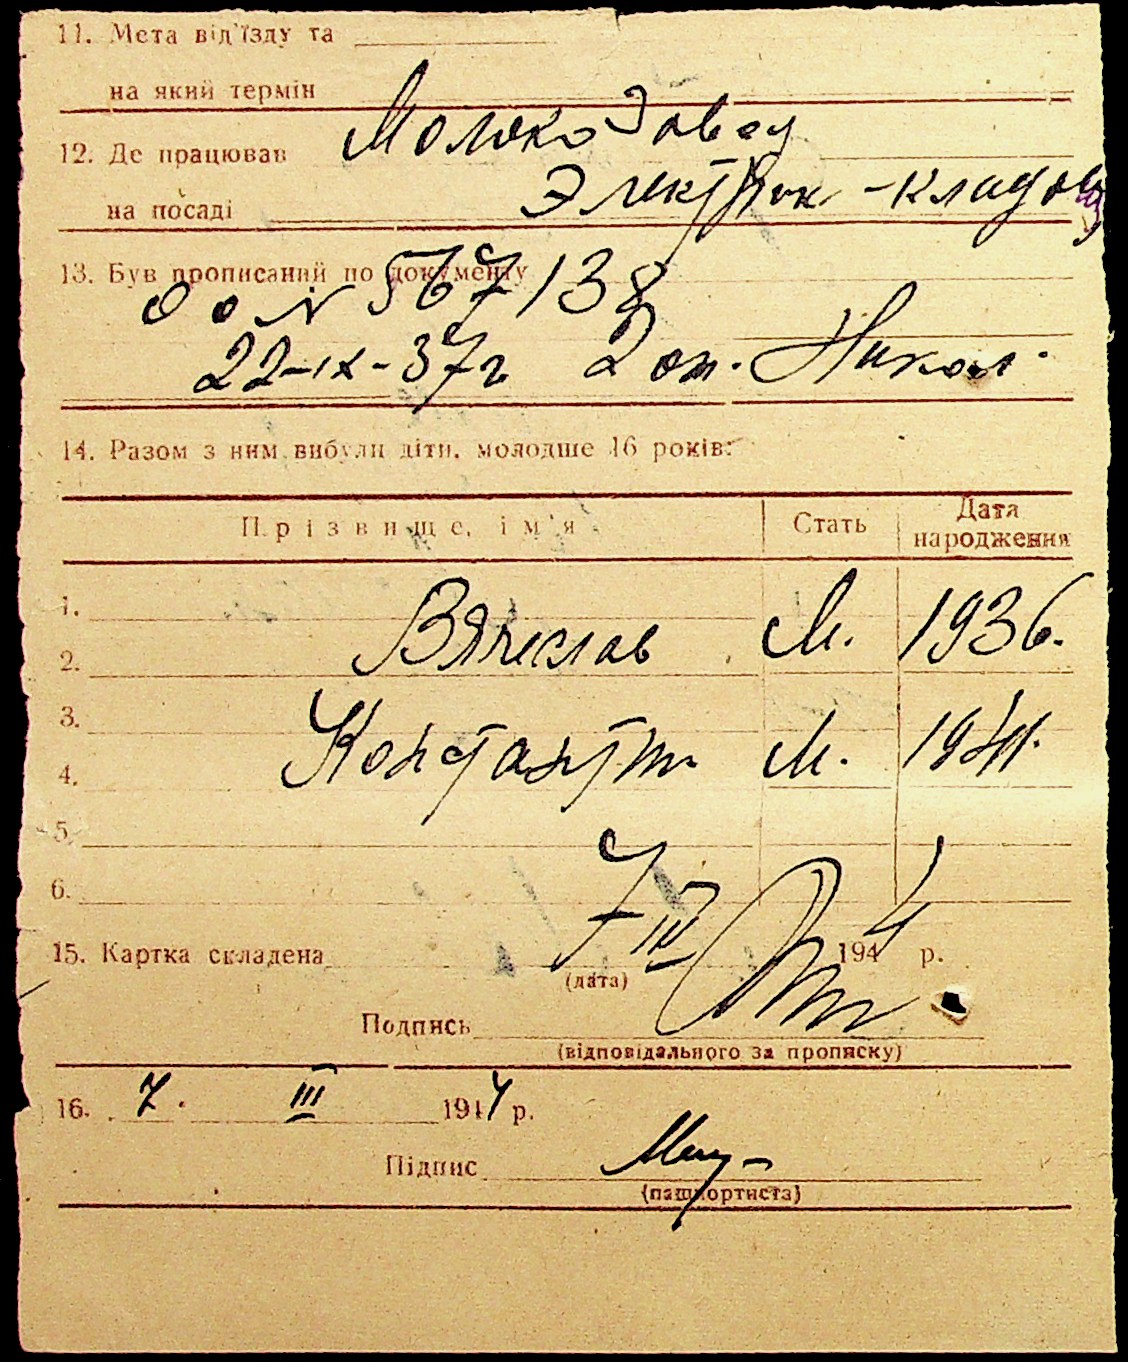 11. Мета від'їзду та
на який термін
12. Де працював Молокозавод
на посаді Электрик-кладов
13. Був прописаний по документу
№ 567138
22-IX-37г 2 от. Никол.
14. Разом з ним вибули діти, молодше 16 років:
Прізвище, ім'я Стать Дата народження
1.
2. Вячеслав М. 1936.
3.
4. Константин М. 1941.
5.
6.
15. Картка складена 7 IV 1944 р.
(дата)
Подпись
(відповідального за прописку)
16. 7. III 1944 р.
Підпис
(пашпортиста)